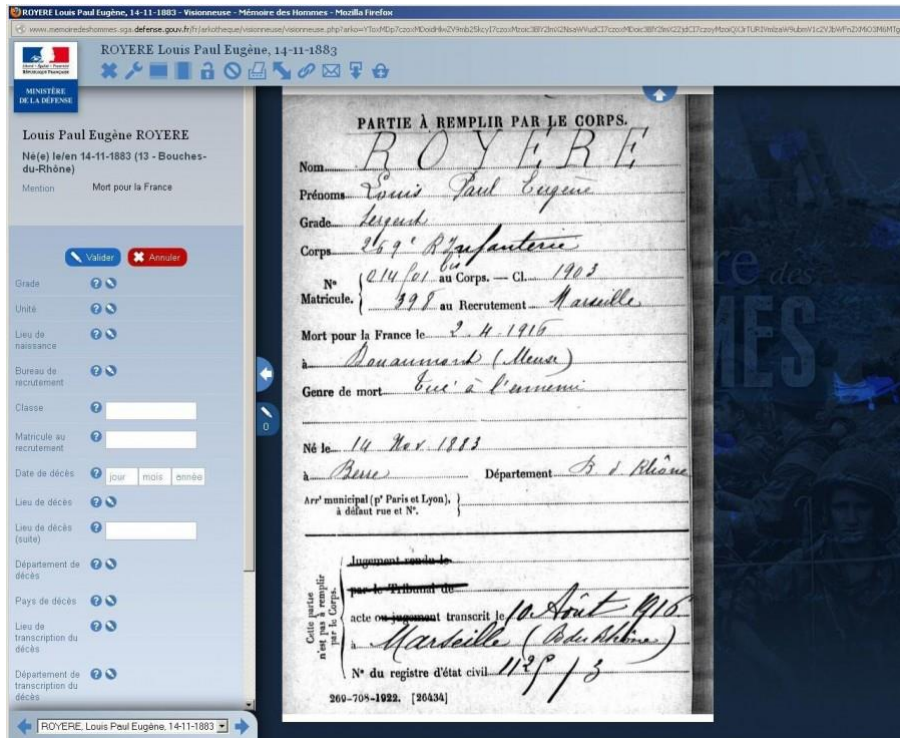 ROYERE Louis Paul Eugène, 14-11-1883 - Visionneuse - Mémoire des Hommes - Mozilla Firefox
ROYERE Louis Paul Eugène, 14-11-1883
Liberté • Égalité • Fraternité
RÉPUBLIQUE FRANÇAISE
MINISTÈRE
DE LA DÉFENSE
Louis Paul Eugène ROYERE
Né(e) le/en 14-11-1883 (13 - Bouches-
du-Rhône)
Mention Mort pour la France
Valider Annuler
Grade
Unité
Lieu de
naissance
Bureau de
recrutement
Classe
Matricule au
recrutement
Date de décès jour mois année
Lieu de décès
Lieu de décès
(suite)
Département de
décès
Pays de décès
Lieu de
transcription du
décès
Département de
transcription du
décès
ROYERE, Louis Paul Eugène, 14-11-1883
0
PARTIE À REMPLIR PAR LE CORPS.
Nom ROYERE
Prénoms Louis Paul Eugène
Grade Sergent
Corps 269e R Infanterie
N° Matricule. 014/01 bis au Corps. — Cl. 1903
398 au Recrutement Marseille
Mort pour la France le 2.4.1916
à Douaumont (Meuse)
Genre de mort Tué à l'ennemi
Né le 14 Nov. 1883
à Berre Département B d Rhône
Arrt municipal (pr Paris et Lyon),
à défaut rue et N°.
Cette partie
n'est pas à remplir
par le Corps.
Jugement rendu le
par le Tribunal de
acte ou jugement transcrit le 10 Août 1916
à Marseille (B du Rhône)
N° du registre d'état civil
269-708-1922. [26434]
re des
MES